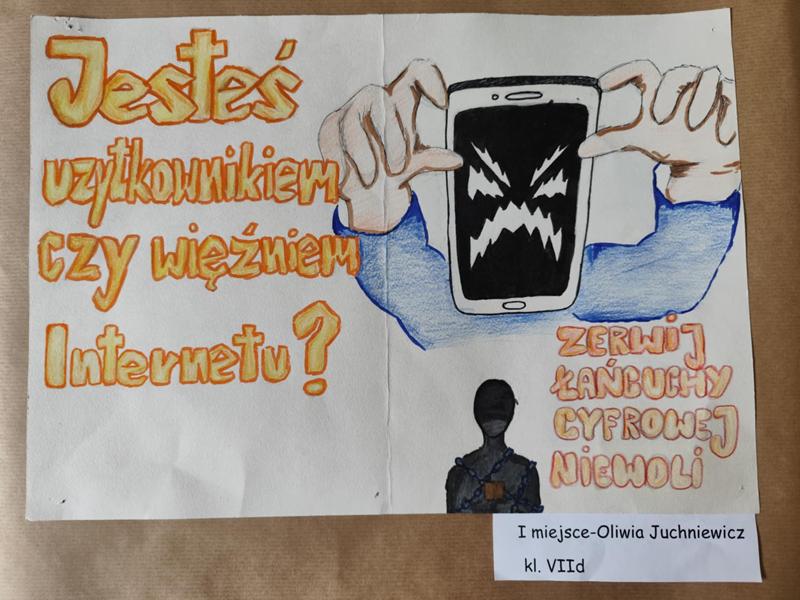 Jesteś
użytkownikiem
czy więźniem
Internetu?
ZERWIJ
ŁAŃCUCHY
CYFROWEJ
NIEWOLI
I miejsce-Oliwia Juchniewicz
kl. VIId